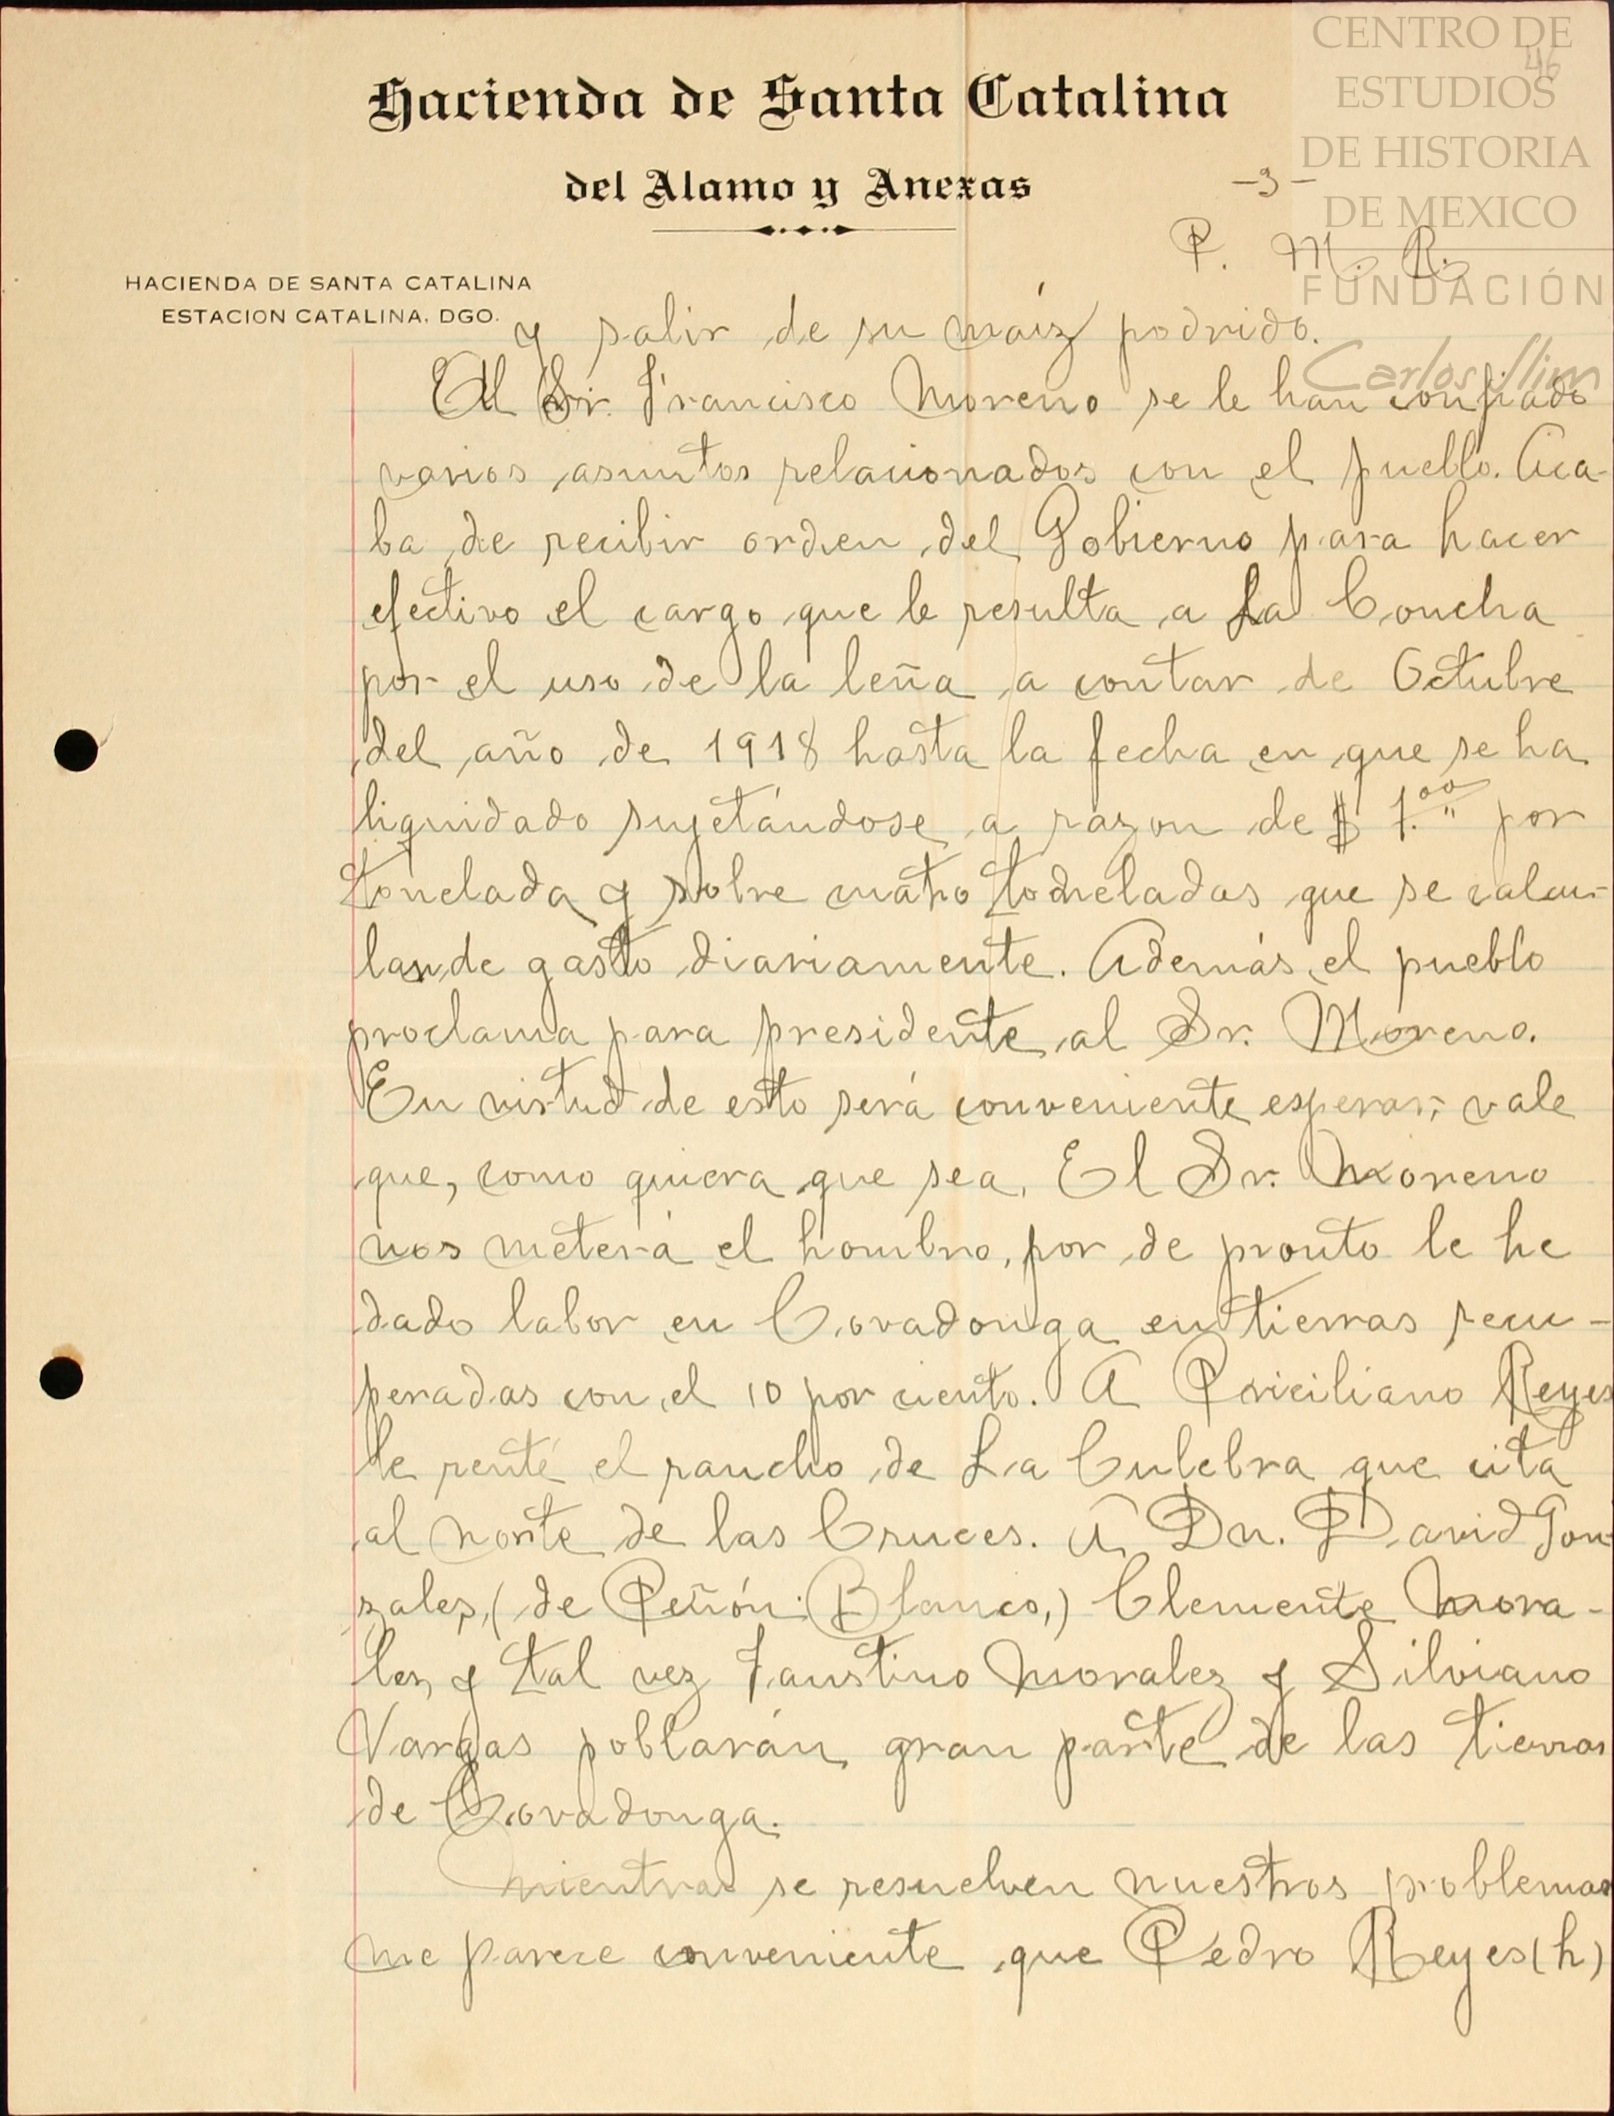 CENTRO DE
ESTUDIOS
DE HISTORIA
DE MEXICO
FUNDACIÓN
Carlos Slim
46
Hacienda de Santa Catalina
del Alamo y Anexas
-3-
P. M. R.
HACIENDA DE SANTA CATALINA
ESTACION CATALINA, DGO.
y salir de su maíz podrido.
Al Sr. Francisco Moreno se le han confiado
varios asuntos relacionados con el pueblo. Aca-
ba de recibir orden del Gobierno para hacer
efectivo el cargo que le resulta a La Concha
por el uso de la leña a contar de Octubre
del año de 1918 hasta la fecha en que se ha
liquidado sujetándose a razon de $ 1.00 por
tonelada y sobre cuatro toneladas que se calcu-
lan de gasto diariamente. Además el pueblo
proclama para presidente al Sr. Moreno.
En virtud de esto será conveniente esperar; vale
que, como quiera que sea, El Sr. Moreno
nos meterá el hombro, por de pronto le he
dado labor en Covadonga en tierras recu-
peradas con el 10 por ciento. A Priciliano Reyes
le renté el rancho de La Culebra que está
al norte de las Cruces. A Dn. David Gon
zales, (de Peñón Blanco,) Clemente Mora-
les, y tal vez Faustino Morales y Silviano
Vargas poblarán gran parte de las tierras
de Covadonga.
Mientras se resuelven nuestros problemas
me parece conveniente que Pedro Reyes (h)